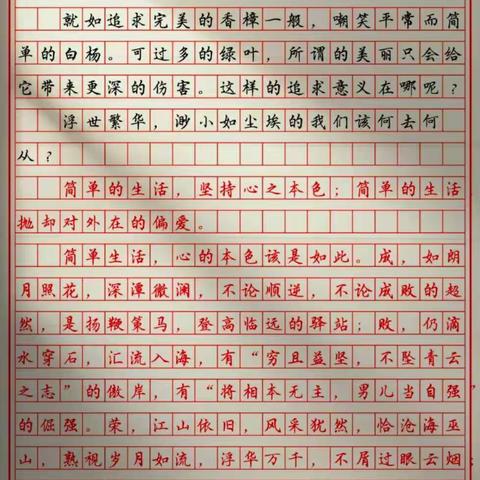 就如追求完美的香樟一般，嘲笑平常而简
单的白杨。可过多的绿叶，所谓的美丽只会给
它带来更深的伤害。这样的追求意义在哪呢？
浮世繁华，渺小如尘埃的我们该何去何
从？
简单的生活，坚持心之本色；简单的生活，
抛却对外在的偏爱。
简单生活，心的本色该是如此。成，如朗
月照花，深潭微澜，不论顺逆，不论成败的超
然，是扬鞭策马，登高临远的驿站；败，仍滴
水穿石，汇流入海，有“穷且益坚，不坠青云
之志”的傲岸，有“将相本无主，男儿当自强”
的倔强。荣，江山依旧，风采犹然，恰沧海巫
山，熟视岁月如流，浮华万千，不屑过眼云烟；